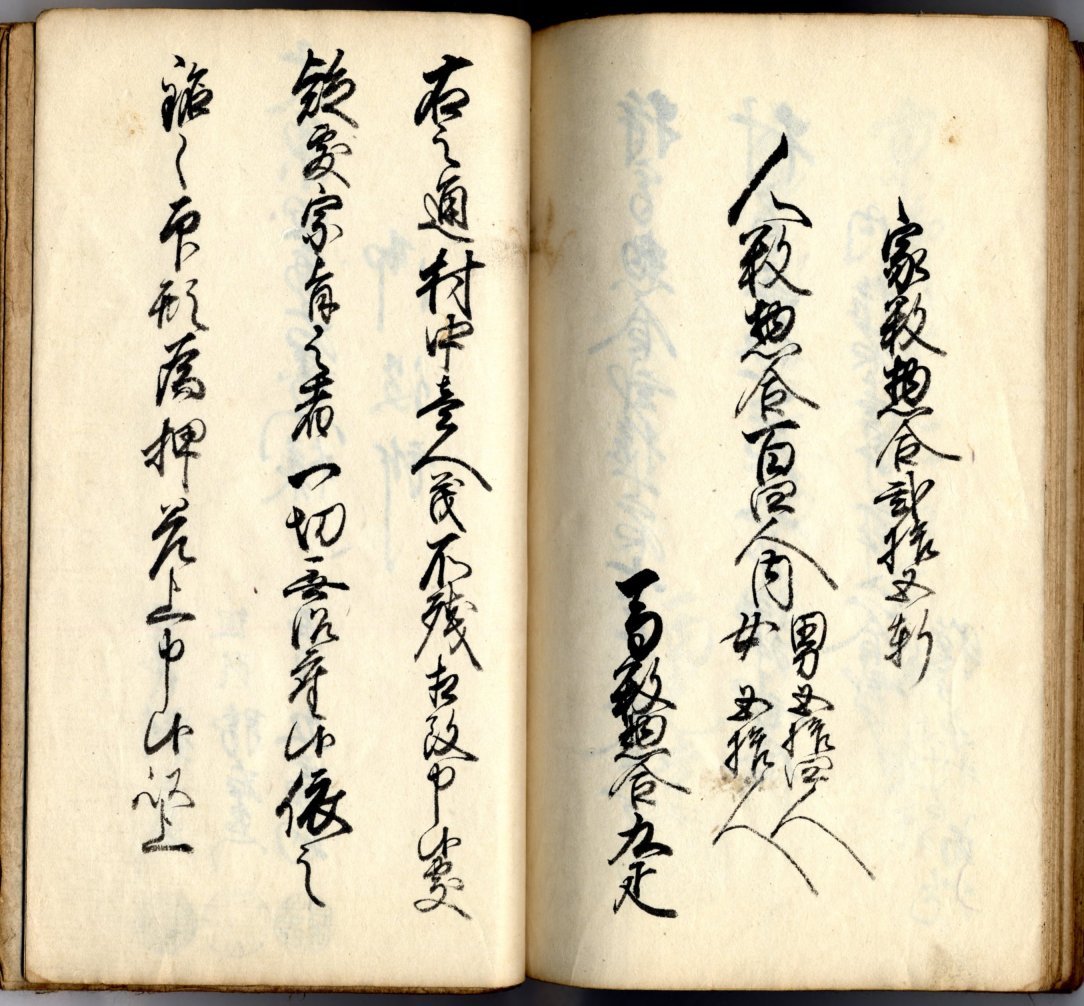 家数惣合弐拾五軒
人数惣合百四人内
男五拾四人
女五拾人
馬数惣合九疋
右之通村中壱人茂不残相改申候処
疑敷宗旨之者一切無御座候依之
銘々印形為押差上申候以上